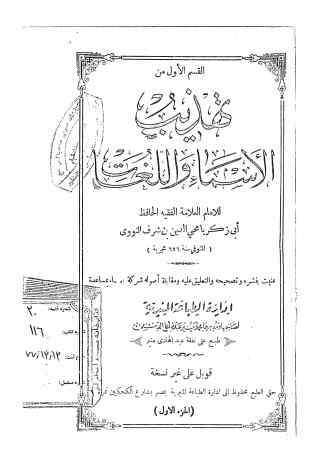 القسم الأول من
تهذيب
الأسماء واللغات
للامام العلامة الفقيه الحافظ
أبى زكريا محيي الدين بن شرف النووى
( المتوفى سنة ٦٧٦ هجرية )
عنيت بنشره وتصحيحه والتعليق عليه ومقابلة أصوله شركة العلماء بمساعدة
ادارة الطباعة المنيرية
قوبل على غير نسخة
حق الطبع محفوظ الى ادارة الطباعة المنيرية بمصر بشارع الكحكيين نمرة
(الجزء الاول)
٢٠
١١٦